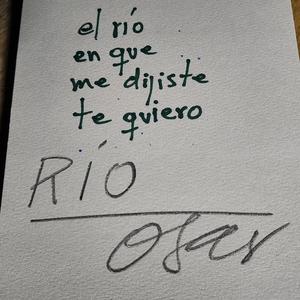 el río
en que
me dijiste
te quiero
RÍO
Osar